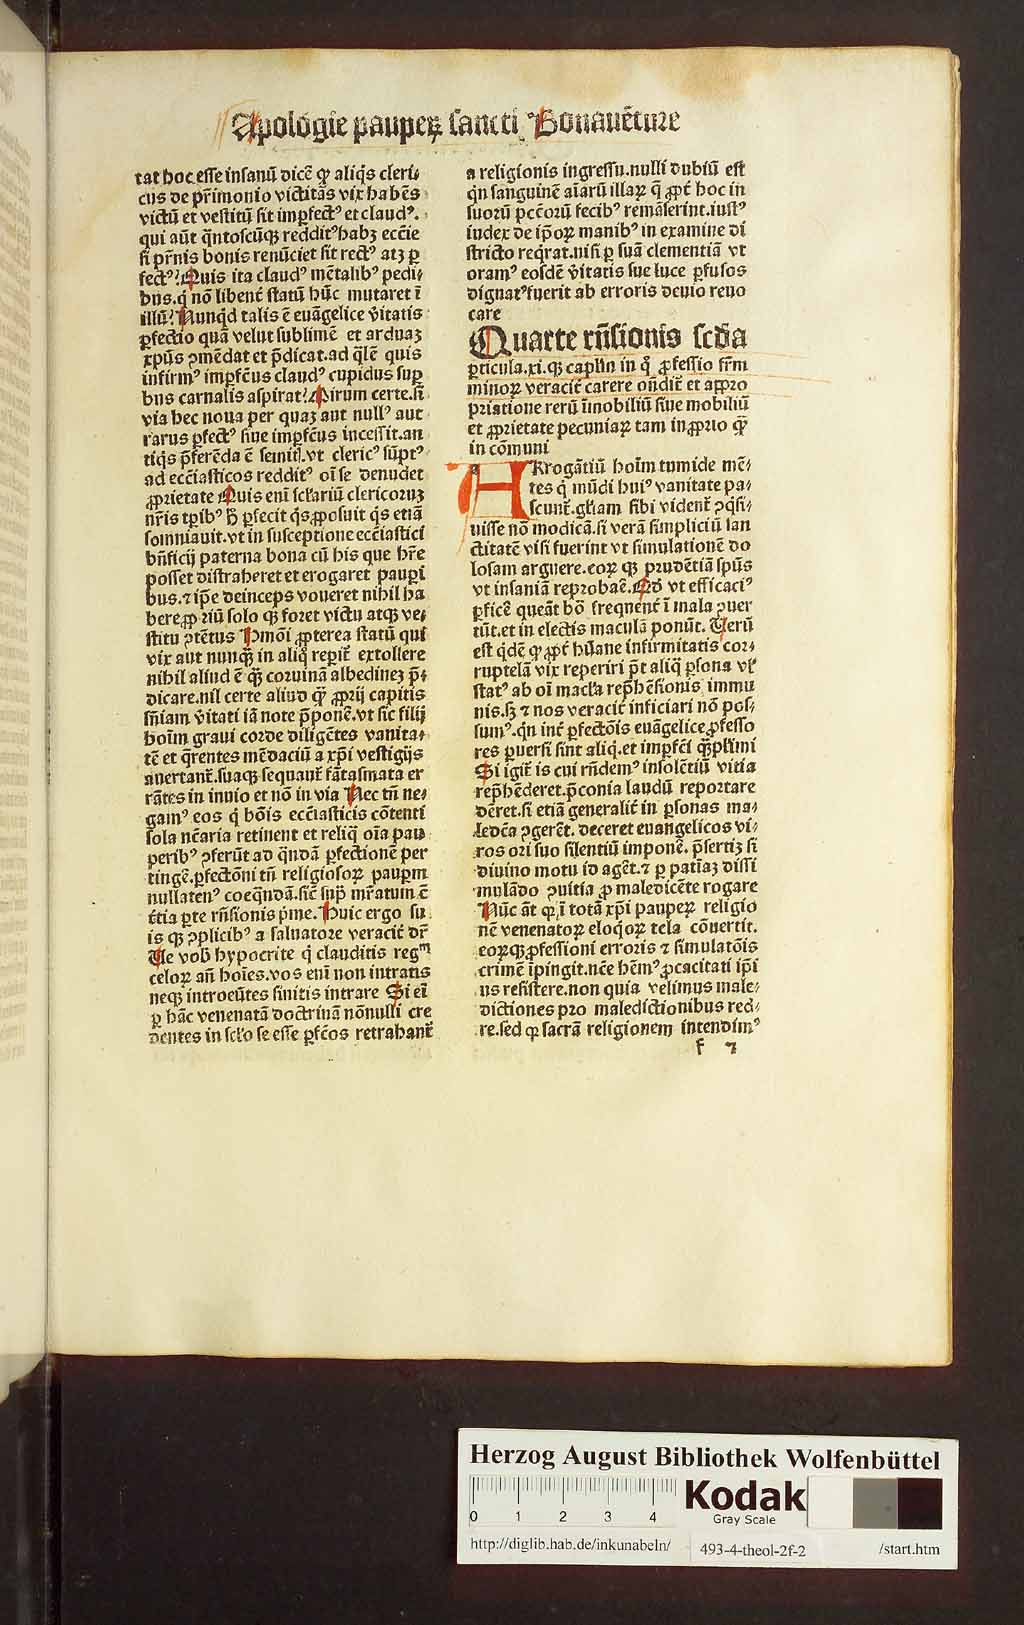 Apologie pauperꝝ sancti Bonauēture
tat hoc esse insanū dicē ꝙ aliq̇s cleri⸗
cus de pr̄imonio victitās vix habēs
victū et vestitū sit imꝑfectꝰ et claudꝰ.
qui aūt q̄ntoscūqꝫ redditꝰ habꝫ eccīe
si pr̄nis bonis renūciet sit rectꝰ atꝫ ꝑ
fectꝰ? Quis ita claudꝰ mētalibꝰ pedi⸗
bus. q̇ nō libent̄ statū hūc mutaret ī
illū? Nunqd talis ē euāgelice v̄itatis
ꝑfectio quā velut sublimē et arduaꝫ
xp̄us ꝯmēdat et p̄dicat. ad q̄lē quis
infirmꝰ imꝑfc̄us claudꝰ cupidus suꝑ
bus carnalis aspirat? Mirum certe. si
via hec noua per quaꝫ aut nullꝰ aut
rarus ꝑfectꝰ siue imꝑfc̄us incessit. an
tiq̇s p̄ferēda ē semit̄. vt clericꝰ sūptꝰ
ad ecc̄iasticos redditꝰ oī se denudet
ꝓprietate Quis enī sclariū clericoruꝫ
nr̄is tp̄ibꝰ ꝑfecit q̇s ꝓposuit q̇s etiā
somniauit. vt in susceptione ecc̄iastici
bn̄ficij paterna bona cū his que hr̄e
posset distraheret et erogaret pauꝑi
bus. ⁊ ip̄e deinceps voueret nihil ha
bere ꝓpriū solo qꝫ foret victu atqꝫ ve⸗
stitu ꝯtētus Hmōi ꝓpterea statū qui
vix aut nunqꝫ in aliq̇ reꝑit̄ extollere
nihil aliud ē qꝫ coruinā albedineꝫ p̄⸗
dicare. nil certe aliud qꝫ ꝓprij capitis
sn̄iam v̄itati iā note p̄ponē. vt sic filij
hoīm graui corde diligētes vanita⸗
tē et q̄rentes mēdaciū a xp̄i vestigijs
auertant̄. suaqꝫ sequant̄ fātasmata er
rātes in inuio et nō in via Nec tn̄ ne⸗
gamꝰ eos q̇ bōis ecc̄iasticis cōtenti
sola nc̄aria retinent et reliq̄ oīa pau
peribꝰ ꝯferūt ad q̄ndā ꝑfectionē per
tingē. ꝑfectōni tn̄ religiosoꝝ pauꝑm
nullatenꝰ coeq̄ndā. sic̄ sup̄ mr̄atum ē
t̄tia ꝑte rn̄sionis p̄me. Huic ergo su
is qꝫ ꝯplicibꝰ a saluatore veracit̄ dr̄
Ue vob̄ hypocrite q̇ clauditis regm̄
celoꝝ an̄ hoīes. vos enī non intratis
neqꝫ introeūtes sinitis intrare Si eī
ꝑ hāc venenatā doctrinā nōnulli cre
dentes in sclo se esse ꝑfc̄os retrahant̄
a religionis ingressu. nulli dubiū est
q̇n sanguinē aīarū illaꝝ q̄ ꝓpt̄ hoc in
suoꝝ pc̄coꝝ fecibꝰ remāserint. iustꝰ
iudex de ip̄oꝝ manibꝰ in examine di
stricto reqrat. nisi ꝑ suā clementiā vt
oramꝰ eosdē v̄itatis sue luce ꝑfusos
dignatꝰ fuerit ab erroris deuio reuo
care
Quarte rn̄sionis scd̄a
ꝑticula. xi. qꝫ caplm̄ in q̇ ꝓfessio frm̄
minoꝝ veracit̄ carere ondit̄ et appro
priatione rerū īmobiliū siue mobiliū
et ꝓprietate pecuniaꝝ tam in ꝓprio qꝫ
in cōmuni
ARrogātiū hoīm tumide mē⸗
tes q̇ mūdi huiꝰ vanitate pa⸗
scunt̄. gl̄iam sibi vident̄ ꝯq̇si⸗
uisse nō modicā. si verā simpliciū san
ctitatē visi fuerint vt simulationē do
losam arguere. eoꝝ qꝫ prudētiā sp̄us
vt insaniā reprobāe. Qd vt efficaciꝰ
ꝑficē queāt bō frequent̄ ī mala ꝯuer
tūt. et in electis maculā ponūt. Uerū
est q̇dē ꝙ ꝓpt̄ hūane infirmitatis cor⸗
ruptelā vix reperiri p̄t aliq̄ ꝑsona vl̓
statꝰ ab oī macla rep̄hēsionis immu
nis. sꝫ ⁊ nos veracit̄ inficiari nō pos⸗
sumꝰ. q̇n int̄ ꝑfectōis euāgelice ꝓfesso
res ꝑuersi sint aliq̇. et imꝑfc̄i qꝫplimi
Si igit̄ is cui rn̄demꝰ insolētiū vitia
rep̄hēderet. p̄conia laudū reportare
dēret. si etiā generalit̄ in ꝑsonas ma⸗
ledc̄a ꝯgerēt. deceret euangelicos vi⸗
ros ori suo silentiū imponē. p̄sertiꝫ si
diuino motu id agēt. ⁊ ꝑ patiaꝫ dissi
mulādo ꝯuitia ꝓ maledicēte rogare
Nūc āt qꝛ ī totā xp̄i pauperꝝ religio
nē venenatoꝝ eloqoꝝ tela cōuertit.
eoꝝqꝫ ꝓfessioni erroris ⁊ simulatōis
crimē īpingit. nc̄e hēmꝰ ꝓcacitati ip̄i
us resistere. non quia velimus male⸗
dictiones pro maledictionibus red⸗
re. sed ꝙ sacrā religionem intendimꝰ
f 7
Herzog August Bibliothek Wolfenbüttel
0 1 2 3 4
Kodak
Gray Scale
http://diglib.hab.de/inkunabeln/ 493-4-theol-2f-2 /start.htm